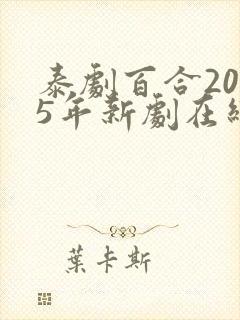 泰劇百合20
5年新劇在線
葉卡斯